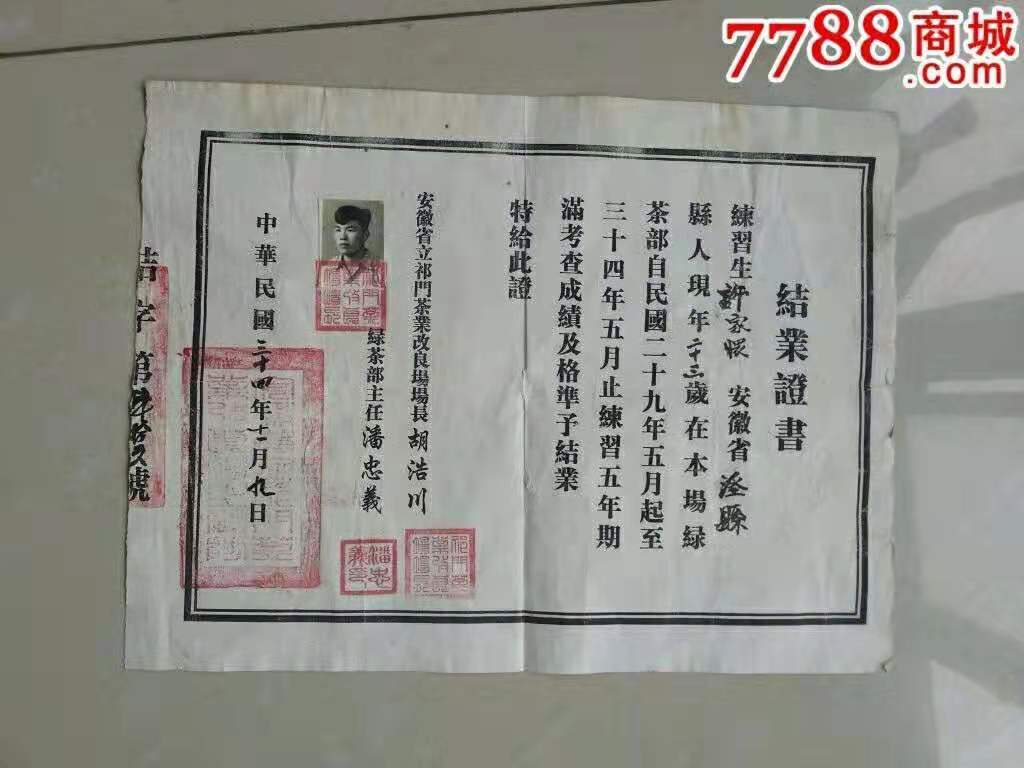 7788商城
.com
結業證書
練習生許家恨 安徽省涇縣
縣人現年二十三歲在本場綠
茶部自民國二十九年五月起至
三十四年五月止練習五年期
滿考查成績及格準予結業
特給此證
安徽省立祁門茶業改良場場長胡浩川
綠茶部主任潘忠義
中華民國三十四年十一月九日
結字第 號
潘忠義